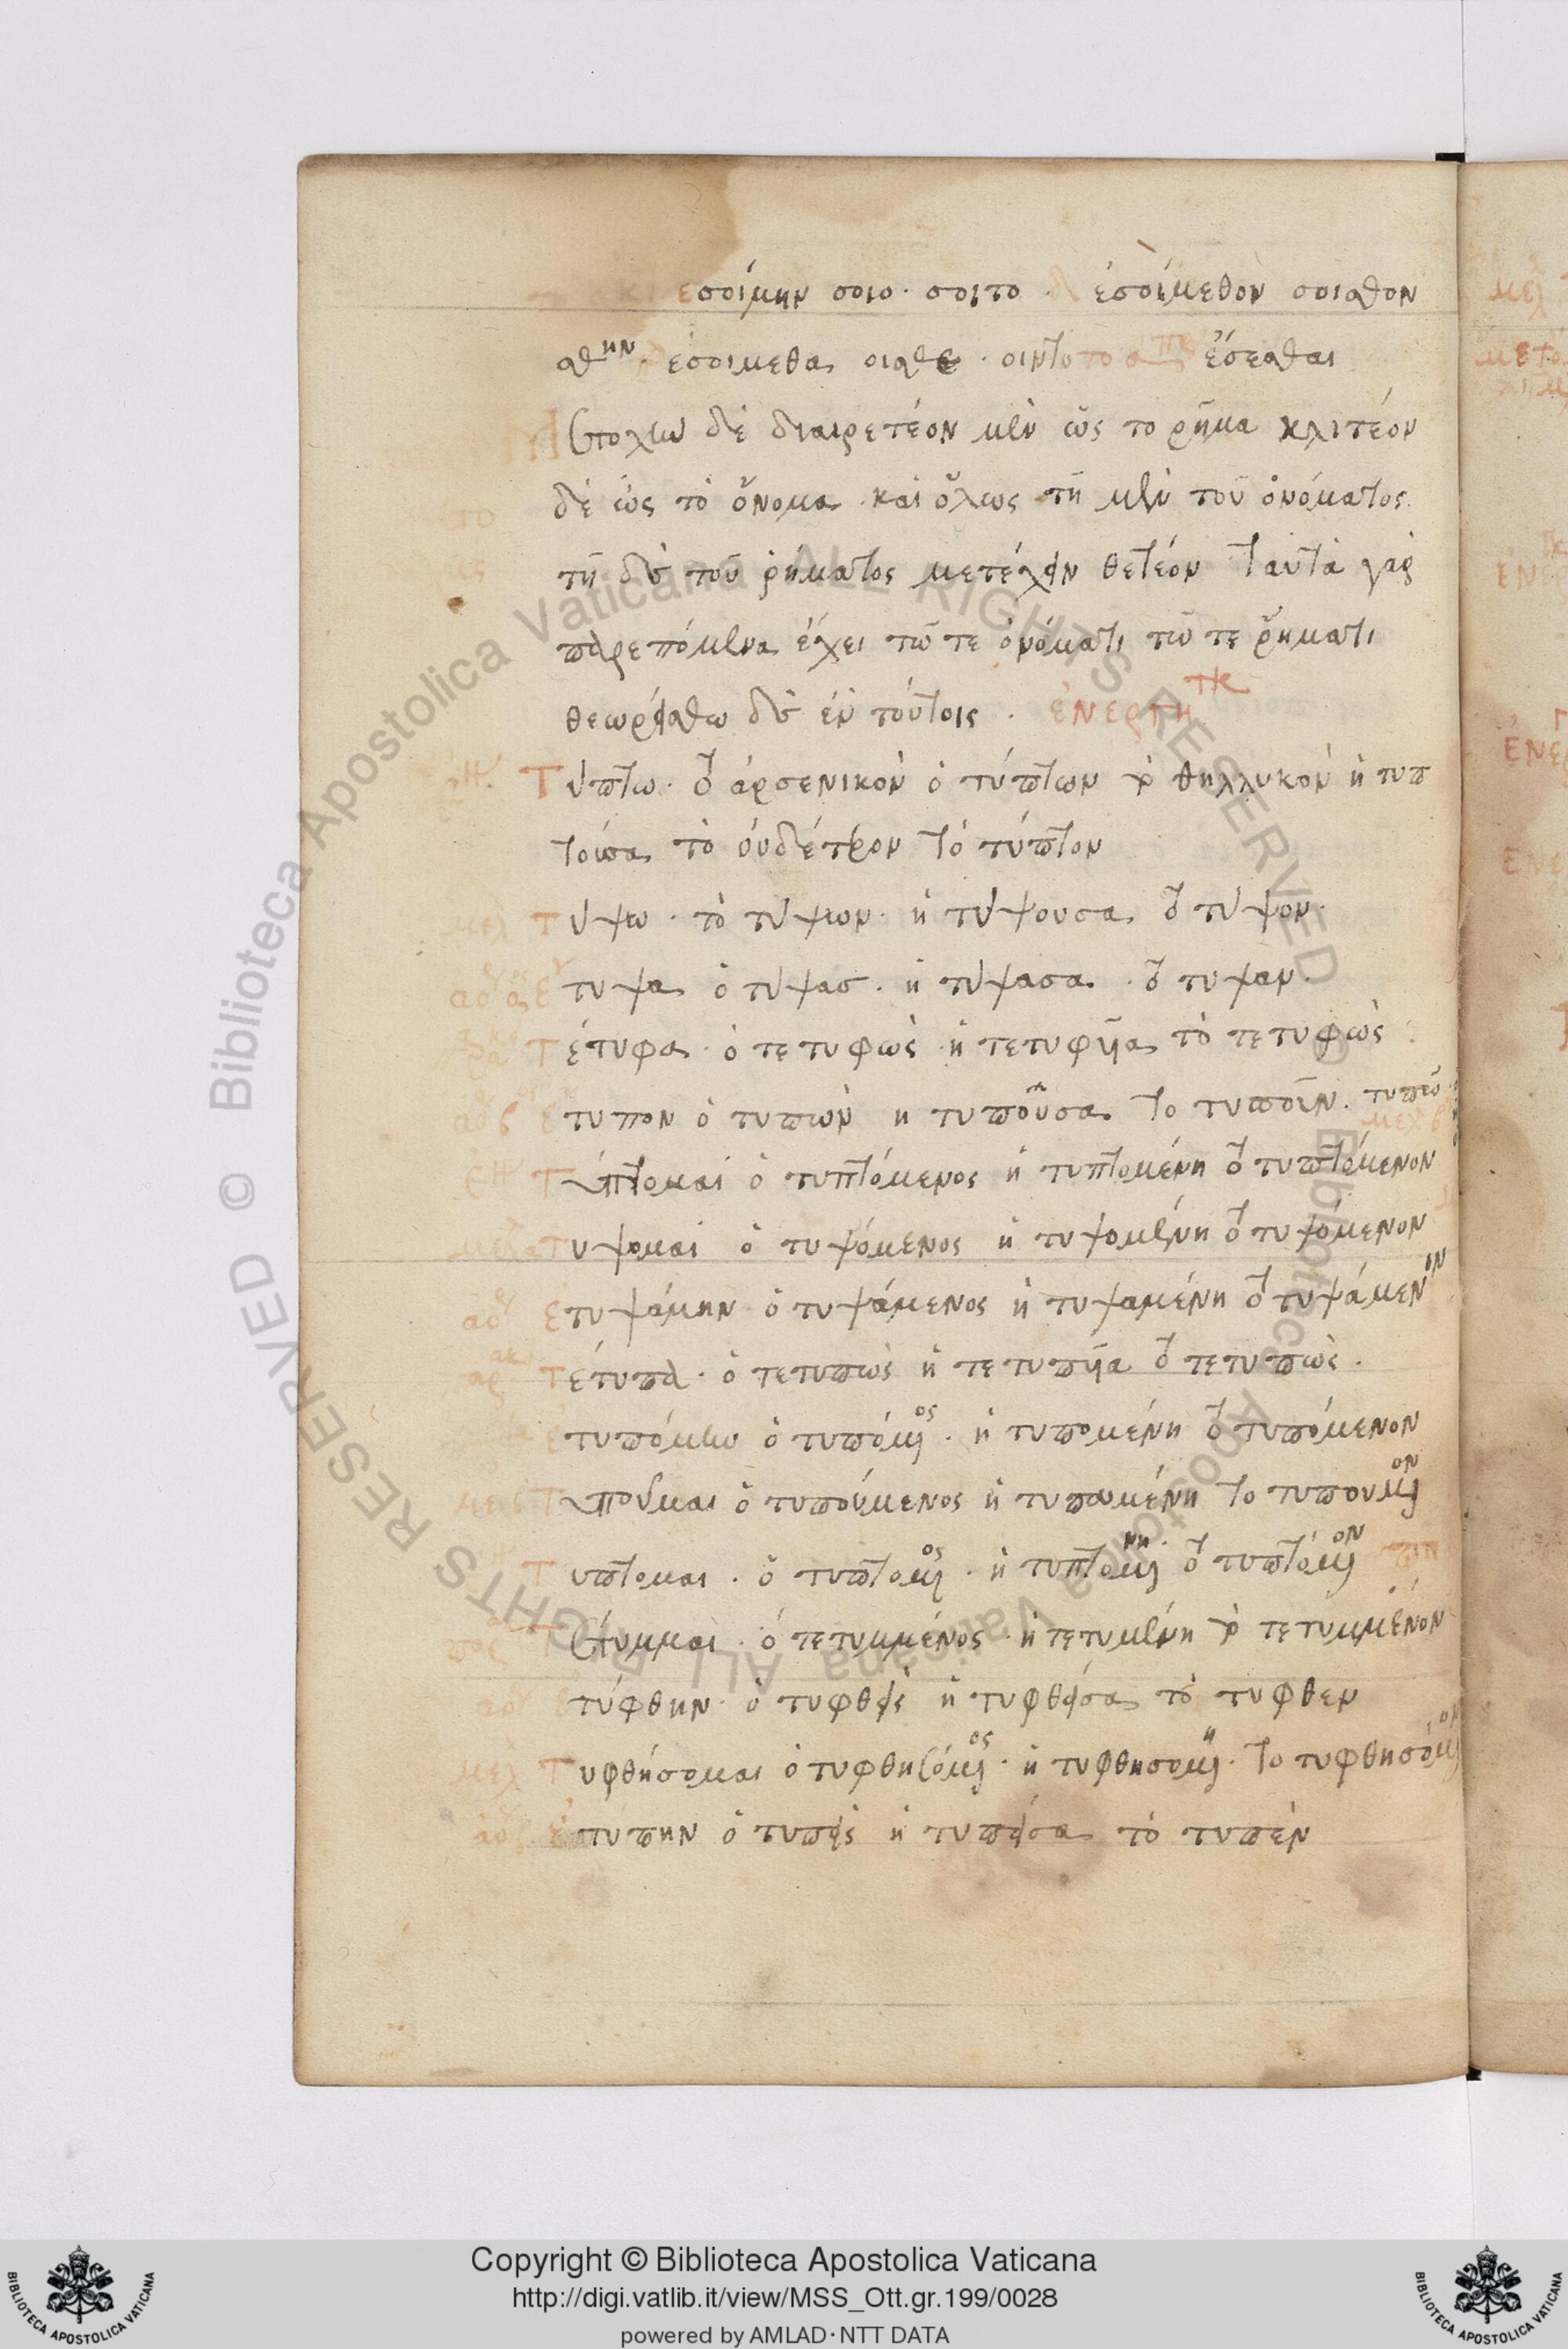 εσοίμην σοιο· σοιτο· δ ἐσοίμεθον σοισθον
σθην· εσοιμεθα οισθε· οιντο το απ ἔσεσθαι
[Μ]ετοχὴν δὲ διαιρετέον μὲν ὡς το ρῆμα κλιτέον
δὲ ὡς τὸ ὄνομα· και ὅλως τῆ μὲν τοῦ ὀνόματος
τῆ δὲ τοῦ ῥήματος μετέχειν θετέον ταῦτὰ γὰρ
παρεπόμενα ἔχει τῶ τε ὀνόματι τῶ τε ῥήματι
θεωρείσθω δὲ ἐν τούτοις· ἐνεργητικ
Τύπτω· τὸ ἀρσενικὸν ὁ τύπτων τὸ θηλλυκὸν ἡ τυπ
τοῦσα τὸ ουδέτερον τὸ τύπτον
μελ Τύψω· τὸ τύψων· ἡ τύψουσα τὸ τύψον·
αορ α Ετυψα ὁ τύψασ· ἡ τύψασα· τὸ τυψαν·
Τέτυφα· ὁ τετυφὼς ἡ τετυφῆα τὸ τετυφὼς
αορ β Ετυπον ὁ τυπὼν η τυποῦσα το τυποῖν· τυπῶ
Τύπτομαι ὁ τυπτόμενος ἡ τυπτομένη τὸ τυπτόμενον
μελ α Τυψομαι ὁ τυψόμενος ἡ τυψομένη τὸ τυψόμενον
αορ Ετυψάμην ὁ τυψάμενος ἡ τυψαμένη τὸ τυψάμενον
Τέτυπα· ὁ τετυπὼς ἡ τετυπῆα τὸ τετυπὼς·
Ετυπόμην ὁ τυπόμενος· ἡ τυπομένη τὸ τυπόμενον
Τυποῦμαι ὁ τυπούμενος ἡ τυπομένη το τυπουμενον
Τυπτομαι· ὁ τυπτομενος· ἡ τυπτομενη· τὸ τυπτόμενον
Τέτυμμαι· ὁ τετυμμένος· ἡ τετυμένη τὸ τετυμμένον
αορ Ετύφθην· ὁ τυφθεὶς ἡ τυφθεῖσα τὸ τυφθεν
μελ Τυφθήσομαι ὁ τυφθησόμενος· ἡ τυφθησομενη· το τυφθησόμενον
αορ Ετύπην ὁ τυπεὶς ἡ τυπεῖσα τὸ τυπὲν
Copyright © Biblioteca Apostolica Vaticana
http://digi.vatlib.it/view/MSS_Ott.gr.199/0028
powered by AMLAD·NTT DATA